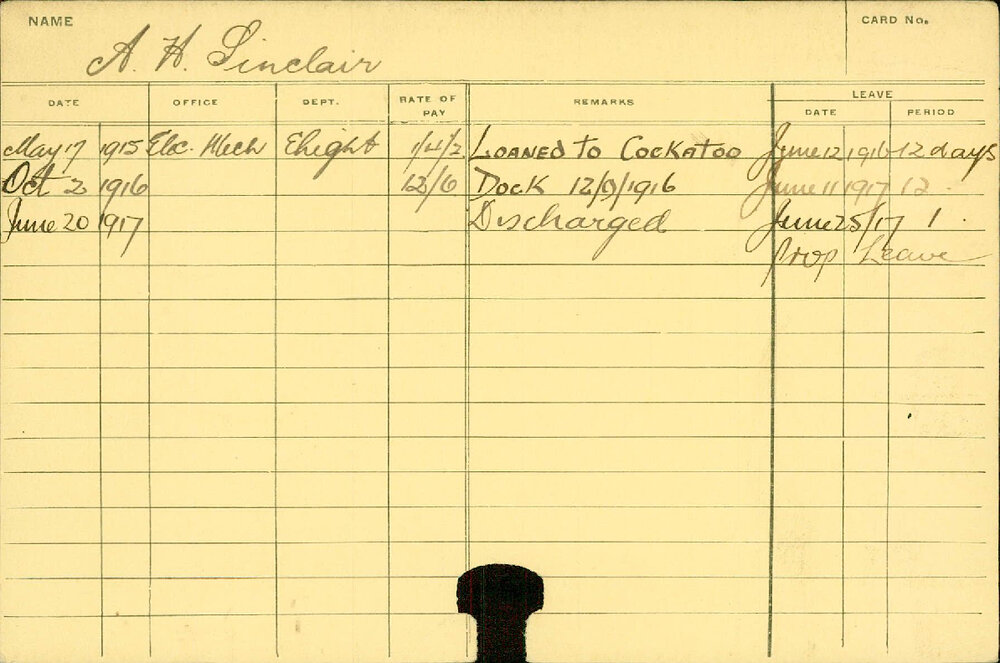 NAME A. H. Sinclair CARD No.
DATE OFFICE DEPT. RATE OF PAY REMARKS LEAVE
DATE PERIOD
May 17 1915 Elec. Mech Elight 1/4/2 LOANED TO COCKATOO June 12 1916 12 days
Oct 2 1916 12/6 DOCK 12/9/1916 June 11 1917 12
June 20 1917 Discharged June 25/17 1
Prop Leave